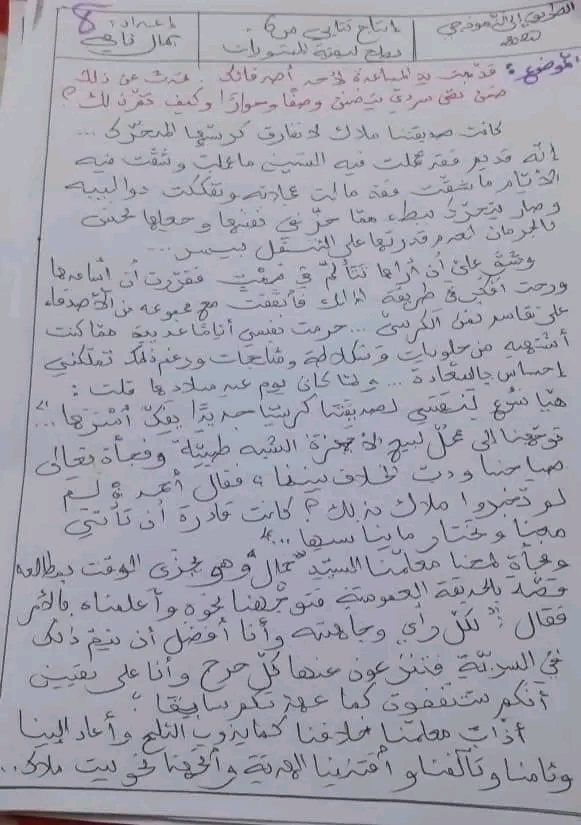 الطريق إلى النموذجي
2020
إنتاج كتابي س6
إعداد:
جمال ناجي
8
الموضوع: قدمت يد المساعدة لأحد أصدقائك. تحدث عن ذلك
ضمن نص سردي يتضمن وصفا وحوارا وكيف تم ذلك؟
كانت صديقتنا ملاك لا تفارق كرسيها المتحرك ...
إنه قديم فقد عملت فيه السنين ما عملت وشقت فيه
الأيام ما شقت فقد مالت عجلاته وتفككت دواليبه
وصار يتحرك ببطء مما حز في نفسها وجعلها تحس
بالحرمان لعدم قدرتها على التنقل بيسر...
وشق علي أن أراها تتألم في صمت فقررت أن أساعدها
ورحت أفكر في طريقة لذلك فاتفقت مع مجموعة من الأصدقاء
على تقاسم ثمن الكرسي ... حرمت نفسي أياما عديدة مما كنت
أشتهيه من حلويات و شكلاطة ومثلجات ورغم ذلك تملكني
إحساس بالسعادة ... ولما حان يوم عيد ميلادها قلت :
هيا نسرع لنقتني لصديقتنا كرسيا جديدا يفك أسرها ..."
توجهنا إلى محل لبيع الأجهزة الشبه طبية وفجأة تعالى
صياحنا ودب الخلاف بيننا فقال أحمد : لم
لم تخبروا ملاك بذلك؟ كانت قادرة أن تأتي
معنا و تختار ما يناسبها ..."
وفجأة لمحنا معلمنا السيد "جمال" وهو يجزي الوقت بمطالعة
قصة بالحديقة العمومية فتوجهنا نحوه وأعلمناه بالأمر
فقال : "لكل رأي وجاهته وأنا أفضل أن يتم ذلك
في السرية فتنزعون عنها كل حرج وأنا على يقين
أنكم ستتفقون كما عهدتكم سابقا"
أذاب معلمنا خلافنا كما يذوب الثلج وأعاد إلينا
وئامنا وتآلفنا و اقتنينا الهدية واتجهنا نحو بيت ملاك..